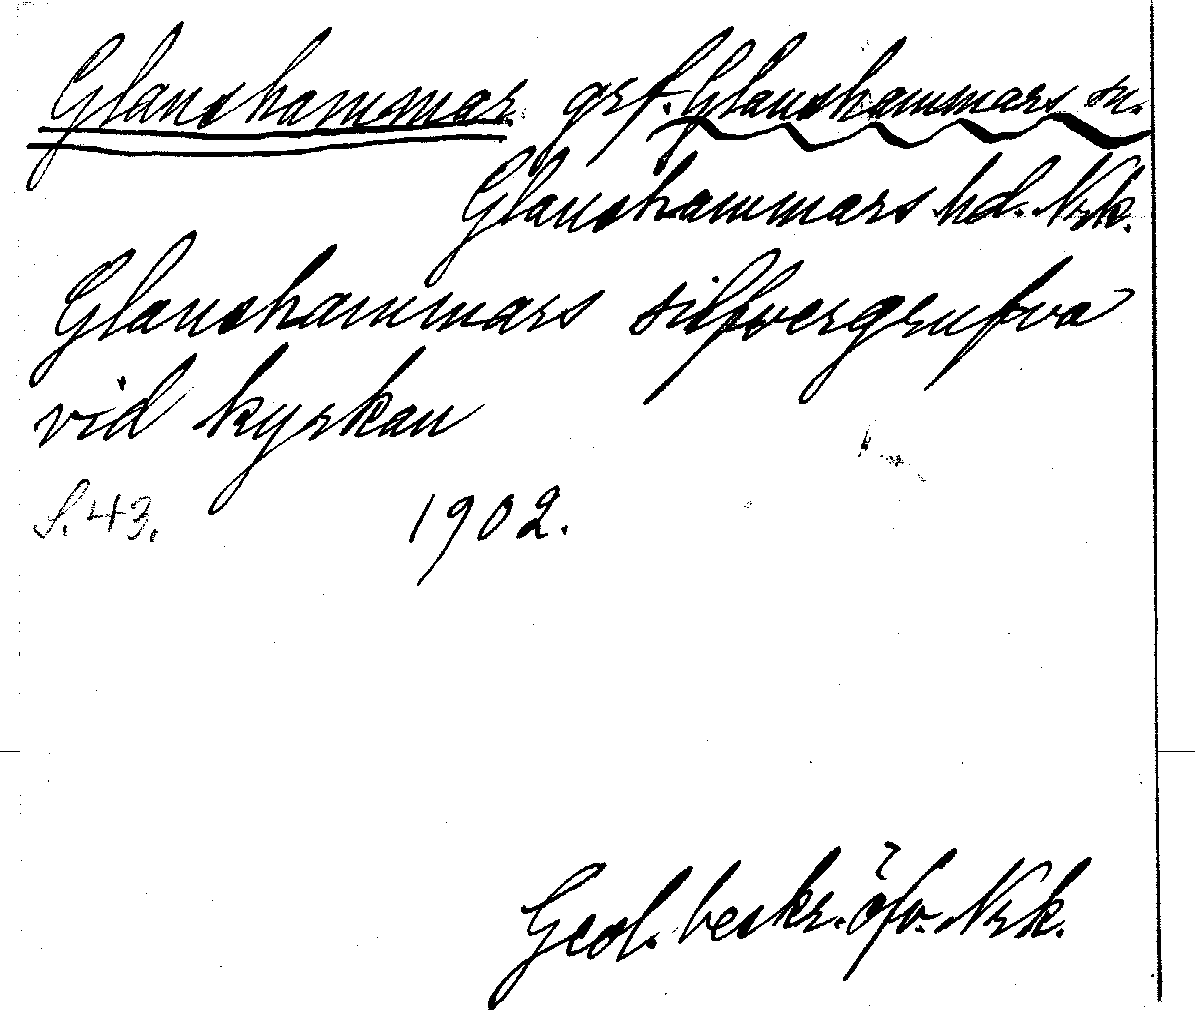 Glanshammar. grf. Glanshammars sn.
Glanshammars hd. Nrk.
Glanshammars silfvergrufva
vid kyrkan
S. 43. 1902.
Geol. beskr. öfv. Nrk.